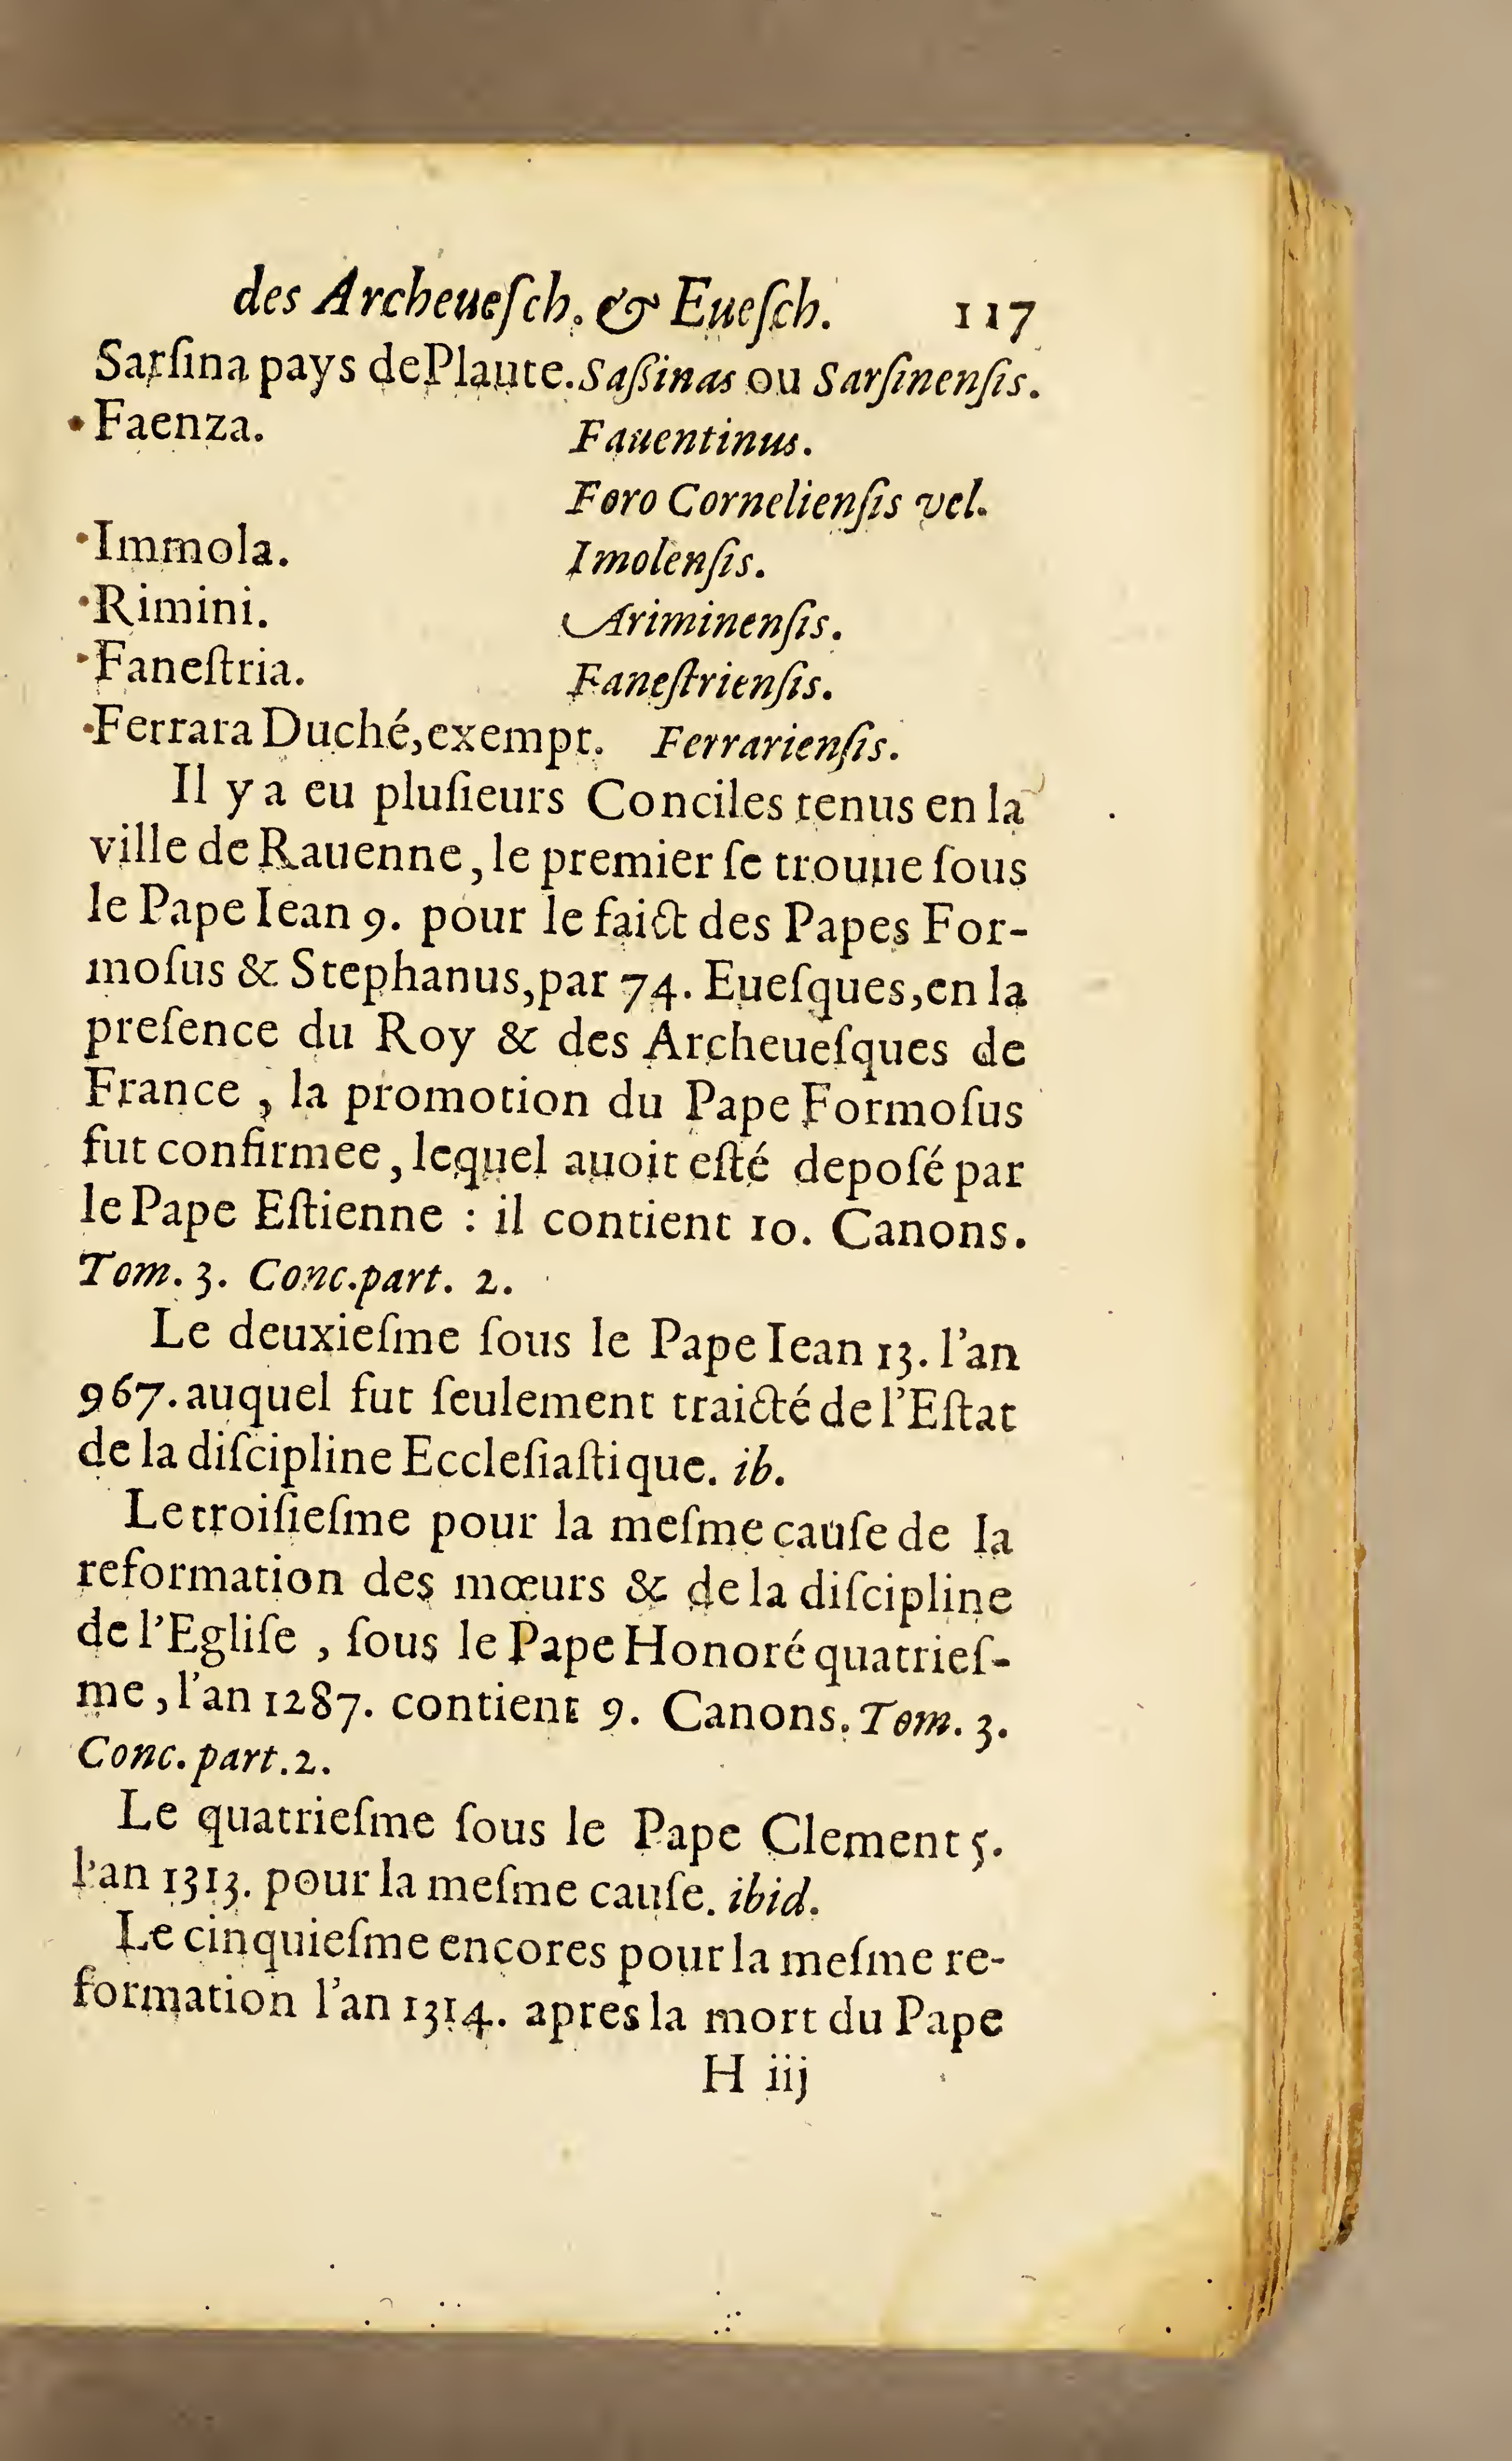 des Archeueſch. & Eueſch. 117
Sarſina pays de Plaute. Saßinas ou Sarſinenſis.
Faenza. Fauentinus.
Foro Cornelienſis vel.
Immola. Imolenſis.
Rimini. Ariminenſis.
Faneſtria. Faneſtrienſis.
Ferrara Duché, exempt. Ferrarienſis.
Il y a eu pluſieurs Conciles tenus en la
ville de Rauenne, le premier ſe trouue ſous
le Pape Iean 9. pour le faict des Papes For-
moſus & Stephanus, par 74. Eueſques, en la
preſence du Roy & des Archeueſques de
France, la promotion du Pape Formoſus
fut confirmee, lequel auoit eſté depoſé par
le Pape Eſtienne : il contient 10. Canons.
Tom. 3. Conc. part. 2.
Le deuxieſme ſous le Pape Iean 13. l'an
967. auquel fut ſeulement traicté de l'Eſtat
de la diſcipline Eccleſiaſtique. ib.
Le troiſieſme pour la meſme cauſe de la
reformation des mœurs & de la diſcipline
de l'Egliſe, ſous le Pape Honoré quatrieſ-
me, l'an 1287. contient 9. Canons. Tom. 3.
Conc. part. 2.
Le quatrieſme ſous le Pape Clement 5.
l'an 1313. pour la meſme cauſe. ibid.
Le cinquieſme encores pour la meſme re-
formation l'an 1314. apres la mort du Pape
H iij